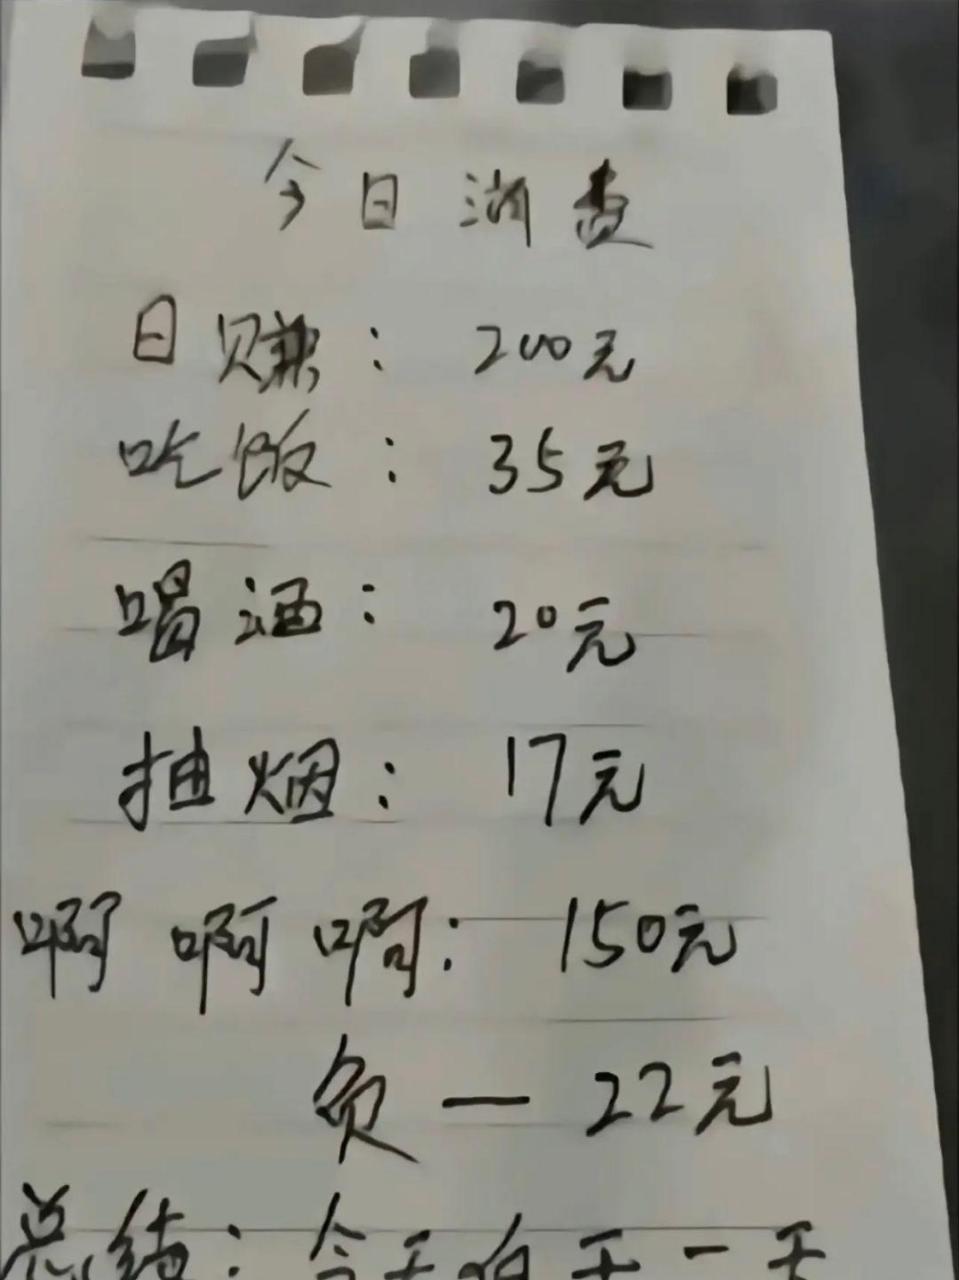 今日消费
日赚：200元
吃饭：35元
喝酒：20元
抽烟：17元
啊啊啊：150元
负—22元
总结：今天白干一天